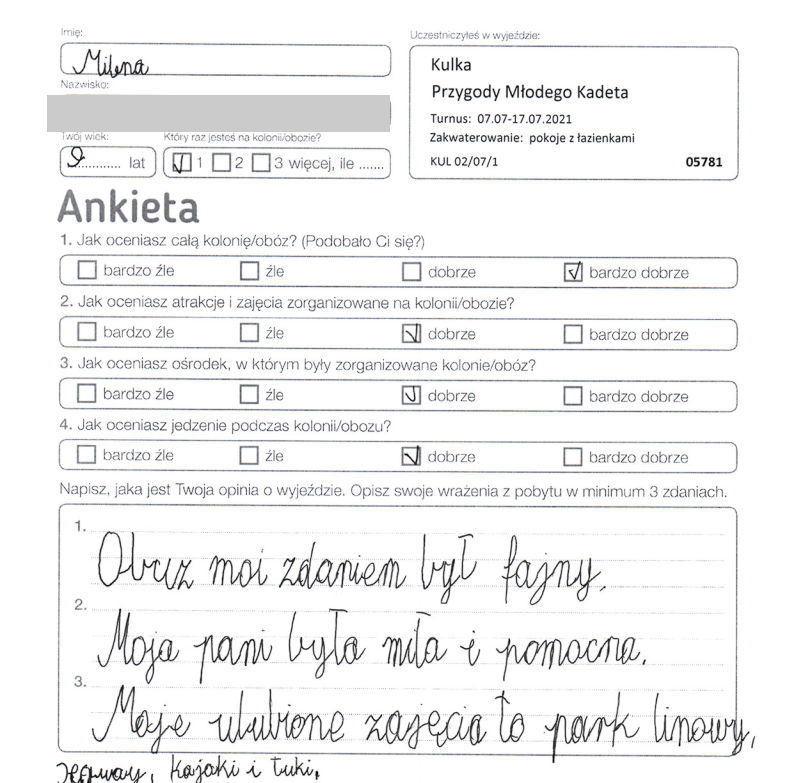 Imię:
Uczestniczyłeś w wyjeździe:
Milena
Kulka
Przygody Młodego Kadeta
Turnus: 07.07-17.07.2021
Zakwaterowanie: pokoje z łazienkami
KUL 02/07/1 05781
Nazwisko:
Twój wiek: Który raz jesteś na kolonii/obozie?
9 lat 1 2 3 więcej, ile .......
Ankieta
1. Jak oceniasz całą kolonię/obóz? (Podobało Ci się?)
bardzo źle źle dobrze bardzo dobrze
2. Jak oceniasz atrakcje i zajęcia zorganizowane na kolonii/obozie?
bardzo źle źle dobrze bardzo dobrze
3. Jak oceniasz ośrodek, w którym były zorganizowane kolonie/obóz?
bardzo źle źle dobrze bardzo dobrze
4. Jak oceniasz jedzenie podczas kolonii/obozu?
bardzo źle źle dobrze bardzo dobrze
Napisz, jaka jest Twoja opinia o wyjeździe. Opisz swoje wrażenia z pobytu w minimum 3 zdaniach.
1. Obuz moi zdaniem był fajny.
2. Moja pani była miła i pomocna.
3. Moje ulubione zajęcia to park linowy,
kajaki i łuki.